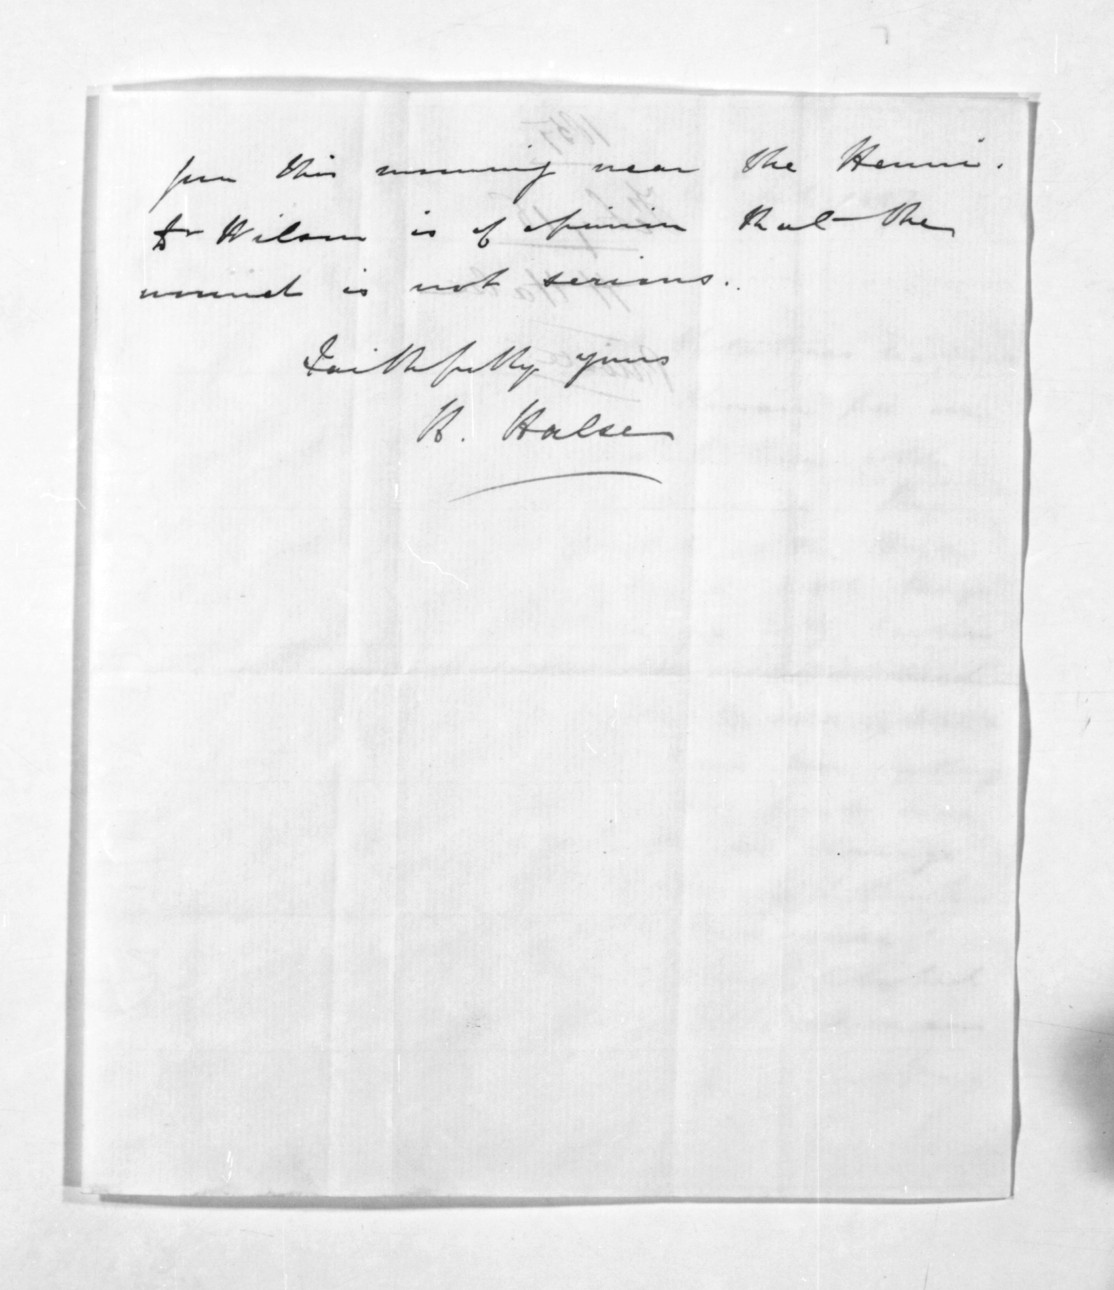 gun this morning near the Henui.
Dr Wilson is of opinion that the
wound is not serious.
Faithfully yours
H. Halse